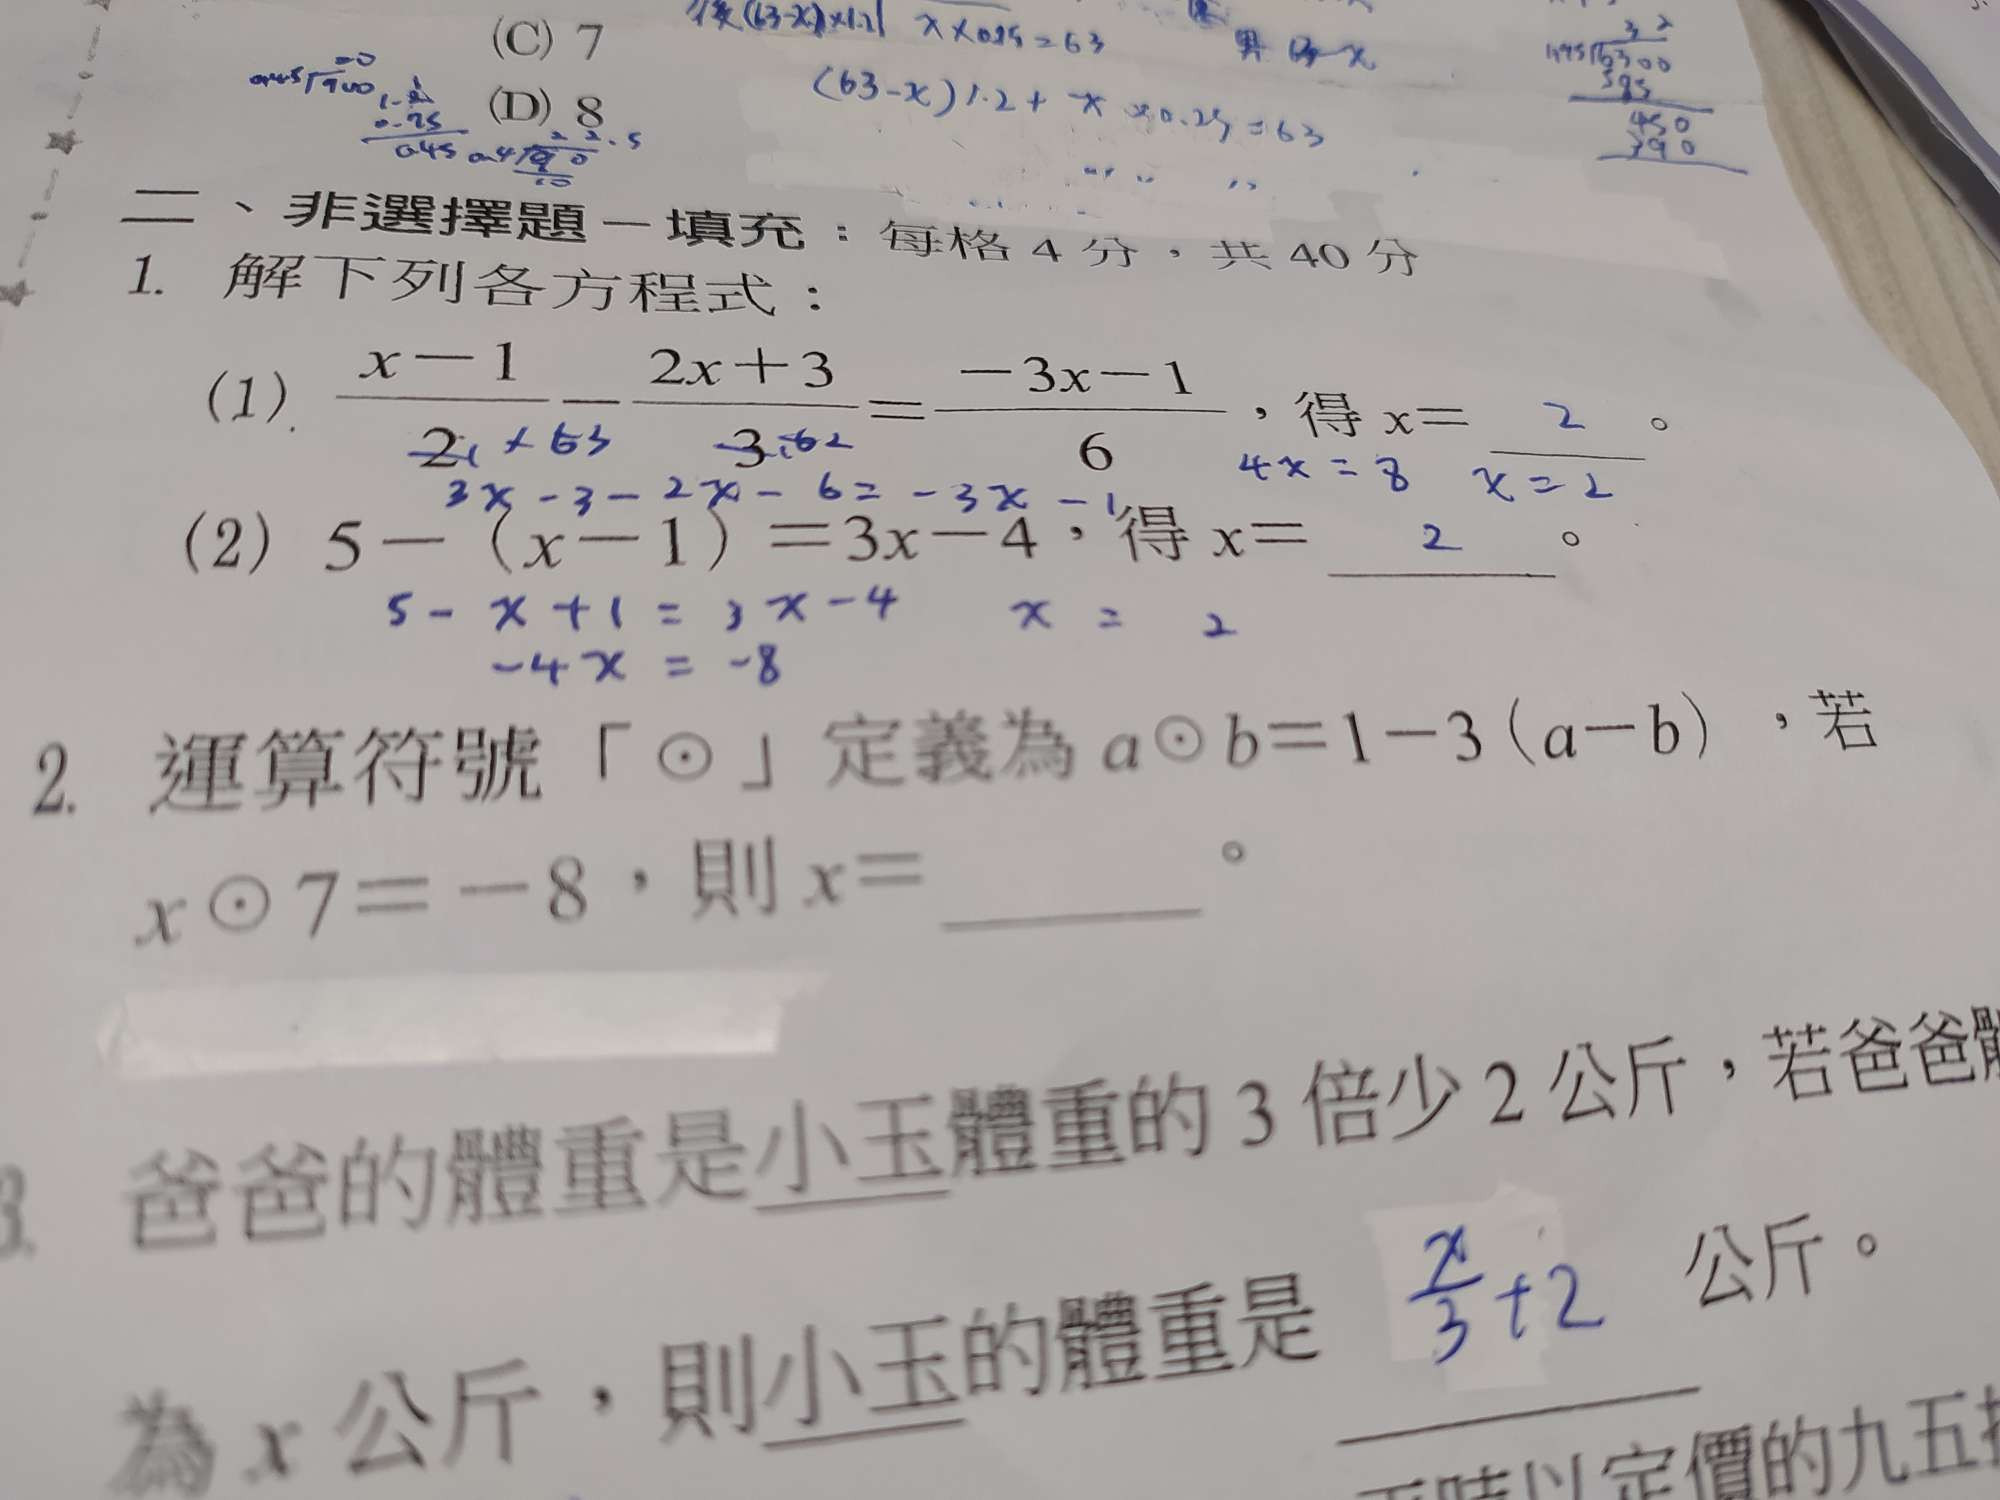 (C) 7
後(63-x)×1.2
x×0.25=63
(D) 8
(63-x)1.2+x×0.25=63
6300
450
390
二、非選擇題－填充：每格4分，共40分
1. 解下列各方程式：
(1) x－1/2 － 2x＋3/3 ＝ －3x－1/6，得 x＝ 2 。
3x-3-2x-6=-3x-1
4x=8 x=2
(2) 5－(x－1)＝3x－4，得 x＝ 2 。
5-x+1=3x-4 x=2
-4x=-8
2. 運算符號「⊙」定義為 a⊙b＝1－3(a－b)，若
x⊙7＝－8，則 x＝ 。
3. 爸爸的體重是小玉體重的3倍少2公斤，若爸爸體
為 x 公斤，則小玉的體重是 x/3+2 公斤。
時以定價的九五折